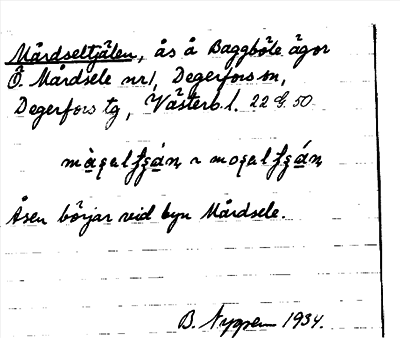 Mårdseltjälen, ås å Baggböle ägor
Ö. Mårdsele nr 1, Degerfors sn,
Degerfors tg, Västerb. l. 22 G. 50
Åsen börjar vid byn Mårdsele.
B. 1934.